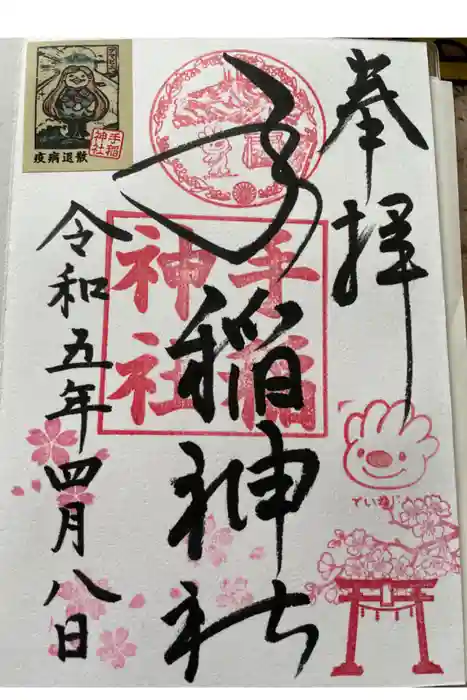 奉拝
手稲神社
手稲
神社
令和五年四月八日
疫病退散
手稲
神社
ていぬくん